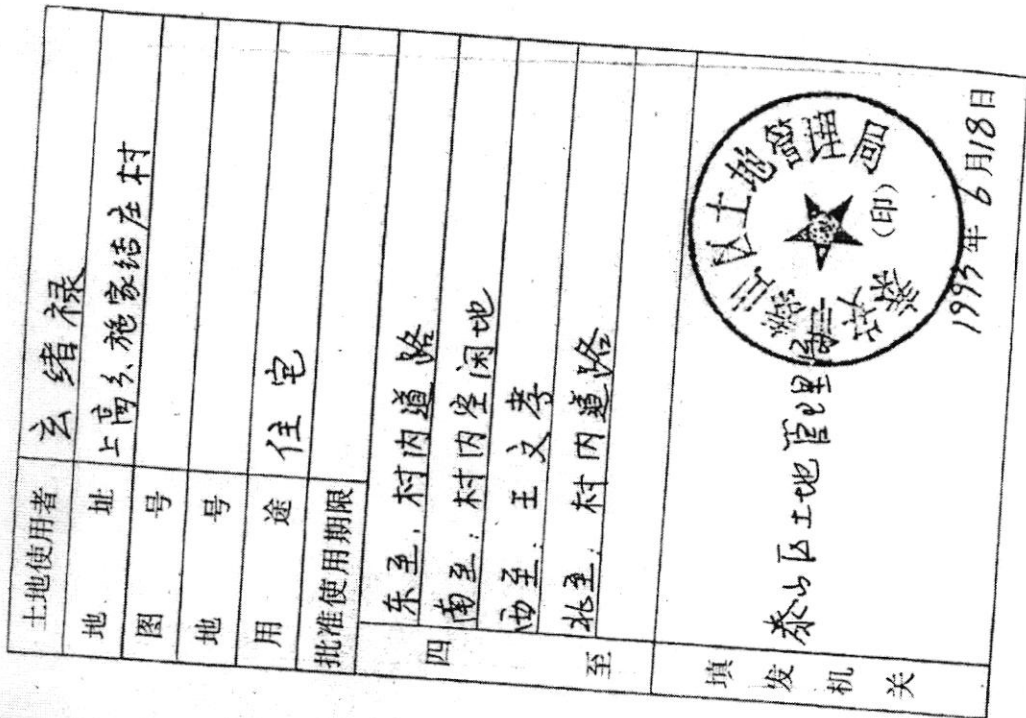 土地使用者 玄绪禄
地址 上高乡施家结庄村
图号
地号
用途 住宅
批准使用期限
四至
东至：村内道路
南至：村内空闲地
西至：王文孝
北至：村内道路
填发机关 泰山区土地管理局
山区土地管理局
(印)
1993年6月18日